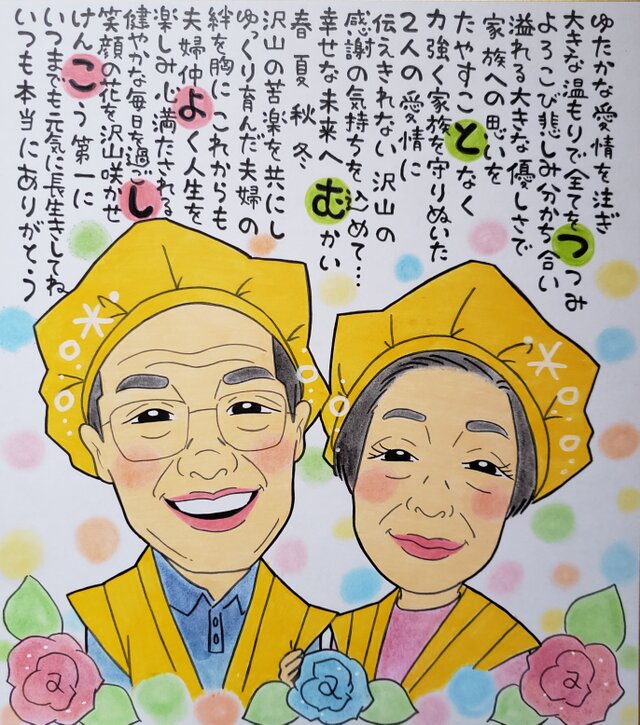 ゆたかな愛情を注ぎ
大きな温もりで全てをつつみ
よろこび悲しみ分かち合い
溢れる大きな優しさで
家族への思いを
たやすことなく
力強く家族を守りぬいた
2人の愛情に
伝えきれない沢山の
感謝の気持ちを込めて…
幸せな未来へむかい
春夏秋冬
沢山の苦楽を共にし
ゆっくり育んだ夫婦の
絆を胸にこれからも
夫婦仲よく人生を
楽しみ心満たされる
健やかな毎日を過ごし
笑顔の花を沢山咲かせ
けんこう第一に
いつまでも元気に長生きしてね
いつも本当にありがとう